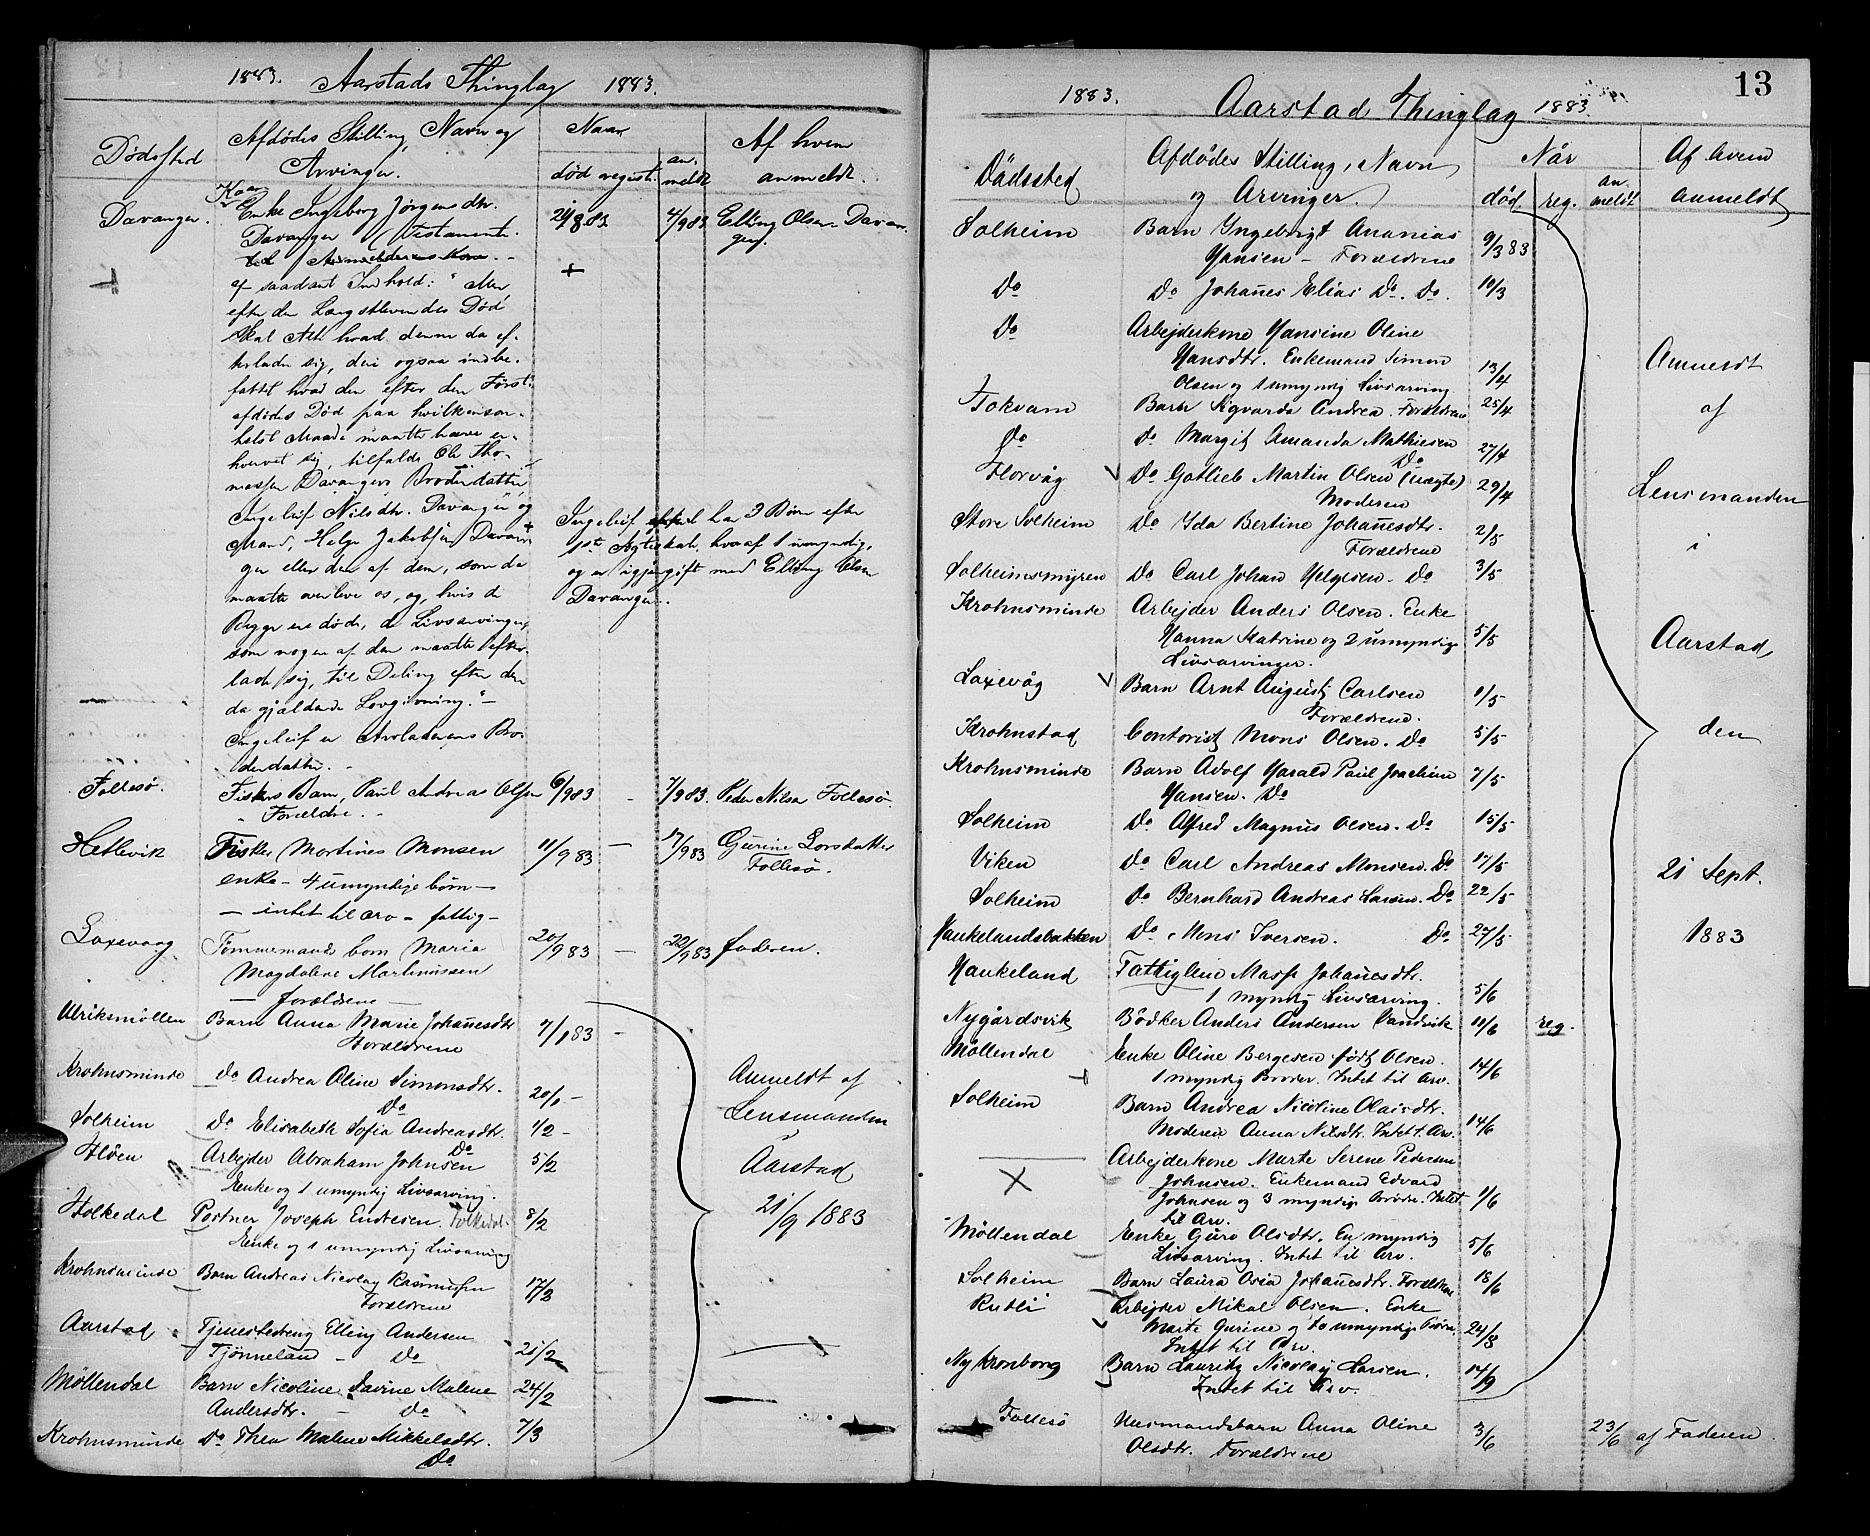 1883. Aarstads Thinglag 1883.
Dødssted
Afdødes Stilling, Navn og
Arvinger.
Naar
død regist. an-
meldt
Af hvem
anmeldt.
Davanger.
Kaar
Enke Ingeborg Jörgensdtr.
Davanger (Testamente
af saadant Indhold: "Men
efter den Længstlevendes Död
skal Alt hvad denne da ef-
terlader sig, deri ogsaa indbe-
fattet hvad den efter den Först-
afdödes Död paa hvilkensom-
helst Maade maatte have er-
hvervet sig, tilfalde Ole Tho-
massen Davangers Broderdatter
Ingeleif Nilsdtr. Davanger og
Mand, Helge Jakobsen Davan-
ger eller den af dem, som da
maatte overleve os, og, hvis de
Begge ere döde, de Livsarvinger
som nogen af dem maatte efter-
lade sig, til Deling efter den
da gjældende Lovgivning." -
Ingeleif er Arvladerens Bro-
derdatter. -
4/9 83
Elling Olsen Davan-
ger.
Ingeleif har 3 Börn efter
1ste Ægteskab, hvoraf 1 umyndig,
og er igjen gift med Elling Olsen
Davanger.
Follesö.
Fiskers Barn, Paul Andreas Olsen
Forældre.
6/9 83 - 7/9 83. Peder Nilsen Follesö.
Hetlevik
Fisker Martines Monsen
enke - 4 umyndige börn -
- intet til arv - fattig -
11/9 83 - 17/9 83
Gurine Larsdatter
Follesö.
Laxevaag
Tömmermands barn Maria
Magdalene Martinussen
- forældrene -
20/9 83 - 22/9 83 faderen.
Ulriksmöllen Barn Anna Marie Johañesdtr
Forældrene
7/1 83 -
Krohnsminde Do Andrea Oline Simonsdtr.
Do
20/1 -
Solheim Do Elisabeth Sofia Andreasdtr.
Do
1/2 -
Flöen Arbejder Abraham Johnsen
Enke og 1 umyndig Livsarving.
5/2
Folkedal Portner Joseph Endresen. Folkedal.
Enke og 1 umyndig Livsarving
8/2
Krohnsminde Barn Andreas Nicolay Rasmussen
Forældrene
17/2
Aarstad Tjenestedreng Elling Andersen
Tjönneland - Do
21/2
Möllendal Barn Nicoline Savine Malene
Andersdtr. - Do
24/2
Krohnsminde Do Thea Malene Mikkelsdtr.
Do
7/3
Anmeldt af
Lensmanden
i
Aarstad
21/9 1883
13
1883. Aarstad Thinglag 1883.
Dödssted
Afdödes Stilling, Navn
og Arvinger.
Når
död reg. an
meldt
Af hvem
anmeldt
Solheim Barn Ingebrigt Ananias
Hansen - Forældrene
9/3 83
Do Do Johañes Elias Do. Do. 10/3
Do Arbejderkone Hansine Oline
Hansdtr. Enkemand Simon
Olsen og 1 umyndig Livsarving
13/4
Tokvam Barn Sigvarda Andrea. Forældrene 25/4
Do Do Margit Amanda Mathiesen
Do
27/4
Florvåg Do Gotlieb Martin Olsen (uægte)
Moderen
29/4
Store Solheim Do Ida Bertine Johañesdtr.
Forældrene
2/5
Solheimsmyren Do Carl Johan Helgesen. Do 3/5
Krohnsminde Arbejder Anders Olsen. Enke
Hanna Katrine og 2 umyndige
Livsarvinger.
5/5
Laxevåg Barn Arnt August Carlsen
Forældrene.
1/5
Krohnstad Contorist Mons Olsen. Do 5/5
Krohnsminde Barn Adolf Harald Paul Joachim
Hansen. Do
7/5
Solheim Do Alfred Magnus Olsen. Do 15/5
Viken Do Carl Andreas Monsen. Do 17/5
Solheim Do Bernhard Andreas Larsen. Do 22/5
Haukelandsbakken Do Mons Iversen. Do 27/5
Haukeland Fattiglem Marft Johañesdtr.
1 myndig Livsarving.
5/6
Nygårdsvik Bödker Anders Andersen Sandvik 10/6 reg.
Möllendal Enke Oline Bergesen født Olsen.
1 myndig Broder. Intet til Arv.
14/6
Solheim Barn Andrea Nicoline Olaisdtr.
Moderen Anna Nilsdtr. Intet t. Arv.
14/6
Arbejderkone Marte Serene Pedersen
Johnsen. Enkemand Edvard
Johnsen og 3 myndige Brödre. Intet
til Arv.
1/6
Möllendal Enke Guro Olsdtr. En myndig
Livsarving. Intet til Arv.
5/6
Solheim Barn Laura Osia Johañesdtr. Forældrene 18/6
Rutli Arbejder Mikal Olsen. Enke
Marte Gurine og to umyndige Börn.
Intet til Arv.
24/8
Ny Kronborg Barn Lauritz Nicolay Larsen.
Intet til Arv.
14/9
Follesö Husmandsbarn Anna Oline
Olsdtr. Forældrene
3/6 23/6 af Faderen.
Anmeldt
af
Lensmanden
i
Aarstad
den
21 Sept.
1883